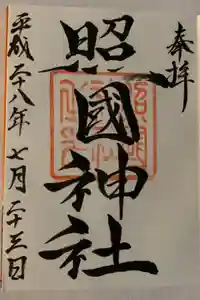 奉拝
照國神社
平成二十八年七月二十三日